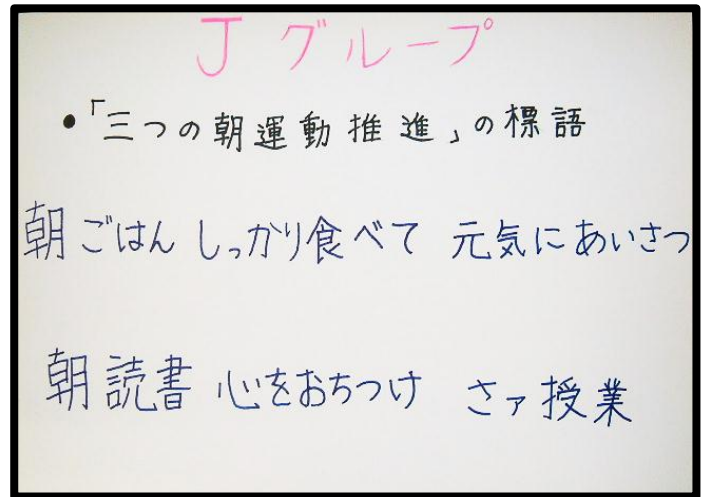 Jグループ
•「三つの朝運動推進」の標語
朝ごはん しっかり食べて 元気にあいさつ
朝読書 心をおちつけ さァ授業